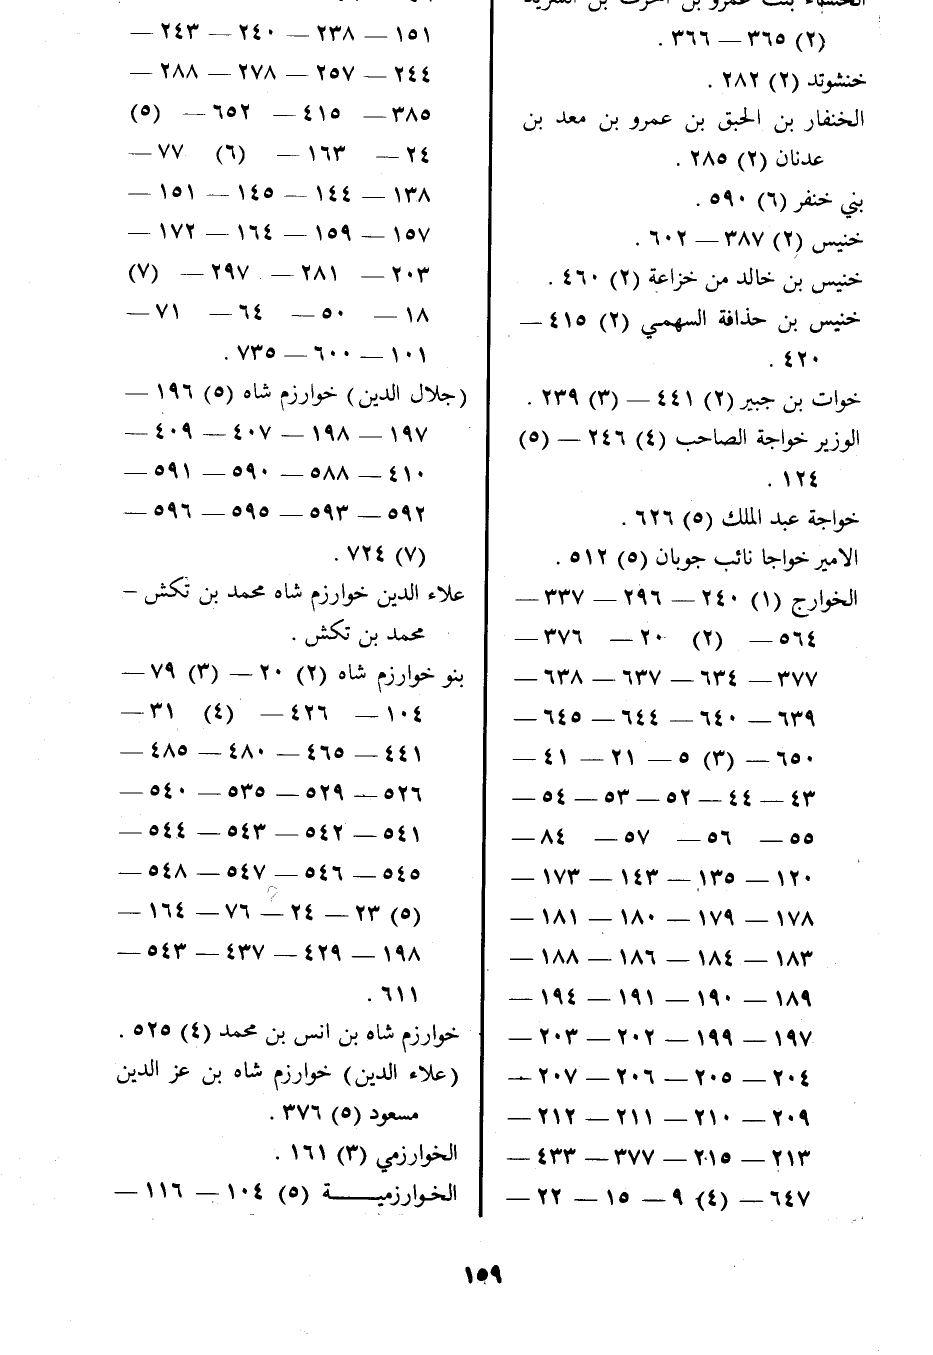 (٢) ٣٦٥ — ٣٦٦ .
خنشوتد (٢) ٢٨٢ .
الخنفار بن الحبق بن عمرو بن معد بن
عدنان (٢) ٢٨٥ .
بني خنفر (٦) ٥٩٠ .
خنيس (٢) ٣٨٧ — ٦٠٢ .
خنيس بن خالد من خزاعة (٢) ٤٦٠ .
خنيس بن حذافة السهمي (٢) ٤١٥ —
٤٢٠ .
خوات بن جبير (٢) ٤٤١ — (٣) ٢٣٩ .
الوزير خواجة الصاحب (٤) ٢٤٦ — (٥)
١٢٤ .
خواجة عبد الملك (٥) ٦٢٦ .
الامير خواجا نائب جوبان (٥) ٥١٢ .
الخوارج (١) ٢٤٠ — ٢٩٦ — ٣٣٧ —
٥٦٤ — (٢) ٢٠ — ٣٧٦ —
٣٧٧ — ٦٣٤ — ٦٣٧ — ٦٣٨ —
٦٣٩ — ٦٤٠ — ٦٤٤ — ٦٤٥ —
٦٥٠ — (٣) ٥ — ٢١ — ٤١ —
٤٣ — ٤٤ — ٥٢ — ٥٣ — ٥٤ —
٥٥ — ٥٦ — ٥٧ — ٨٤ —
١٢٠ — ١٣٥ — ١٤٣ — ١٧٣ —
١٧٨ — ١٧٩ — ١٨٠ — ١٨١ —
١٨٣ — ١٨٤ — ١٨٦ — ١٨٨ —
١٨٩ — ١٩٠ — ١٩١ — ١٩٤ —
١٩٧ — ١٩٩ — ٢٠٢ — ٢٠٣ —
٢٠٤ — ٢٠٥ — ٢٠٦ — ٢٠٧ —
٢٠٩ — ٢١٠ — ٢١١ — ٢١٢ —
٢١٣ — ٢١٥ — ٣٧٧ — ٤٣٣ —
٦٤٧ — (٤) ٩ — ١٥ — ٢٢ —
١٥١ — ٢٣٨ — ٢٤٠ — ٢٤٣ —
٢٤٤ — ٢٥٧ — ٢٧٨ — ٢٨٨ —
٣٨٥ — ٤١٥ — ٦٥٢ — (٥)
٢٤ — ١٦٣ — (٦) ٧٧ —
١٣٨ — ١٤٤ — ١٤٥ — ١٥١ —
١٥٧ — ١٥٩ — ١٦٤ — ١٧٢ —
٢٠٣ — ٢٨١ — ٢٩٧ — (٧)
١٨ — ٥٠ — ٦٤ — ٧١ —
١٠١ — ٦٠٠ — ٧٣٥ .
(جلال الدين) خوارزم شاه (٥) ١٩٦ —
١٩٧ — ١٩٨ — ٤٠٧ — ٤٠٩ —
٤١٠ — ٥٨٨ — ٥٩٠ — ٥٩١ —
٥٩٢ — ٥٩٣ — ٥٩٥ — ٥٩٦ —
(٧) ٧٢٤ .
علاء الدين خوارزم شاه محمد بن تكش –
محمد بن تكش .
بنو خوارزم شاه (٢) ٢٠ — (٣) ٧٩ —
١٠٤ — ٤٢٦ — (٤) ٣١ —
٤٤١ — ٤٦٥ — ٤٨٠ — ٤٨٥ —
٥٢٦ — ٥٢٩ — ٥٣٥ — ٥٤٠ —
٥٤١ — ٥٤٢ — ٥٤٣ — ٥٤٤ —
٥٤٥ — ٥٤٦ — ٥٤٧ — ٥٤٨ —
(٥) ٢٣ — ٢٤ — ٧٦ — ١٦٤ —
١٩٨ — ٤٢٩ — ٤٣٧ — ٥٤٣ —
٦١١ .
خوارزم شاه بن انس بن محمد (٤) ٥٢٥ .
(علاء الدين) خوارزم شاه بن عز الدين
مسعود (٥) ٣٧٦ .
الخوارزمي (٣) ١٦١ .
الخوارزميـــــة (٥) ١٠٤ — ١١٦ —
١٥٩